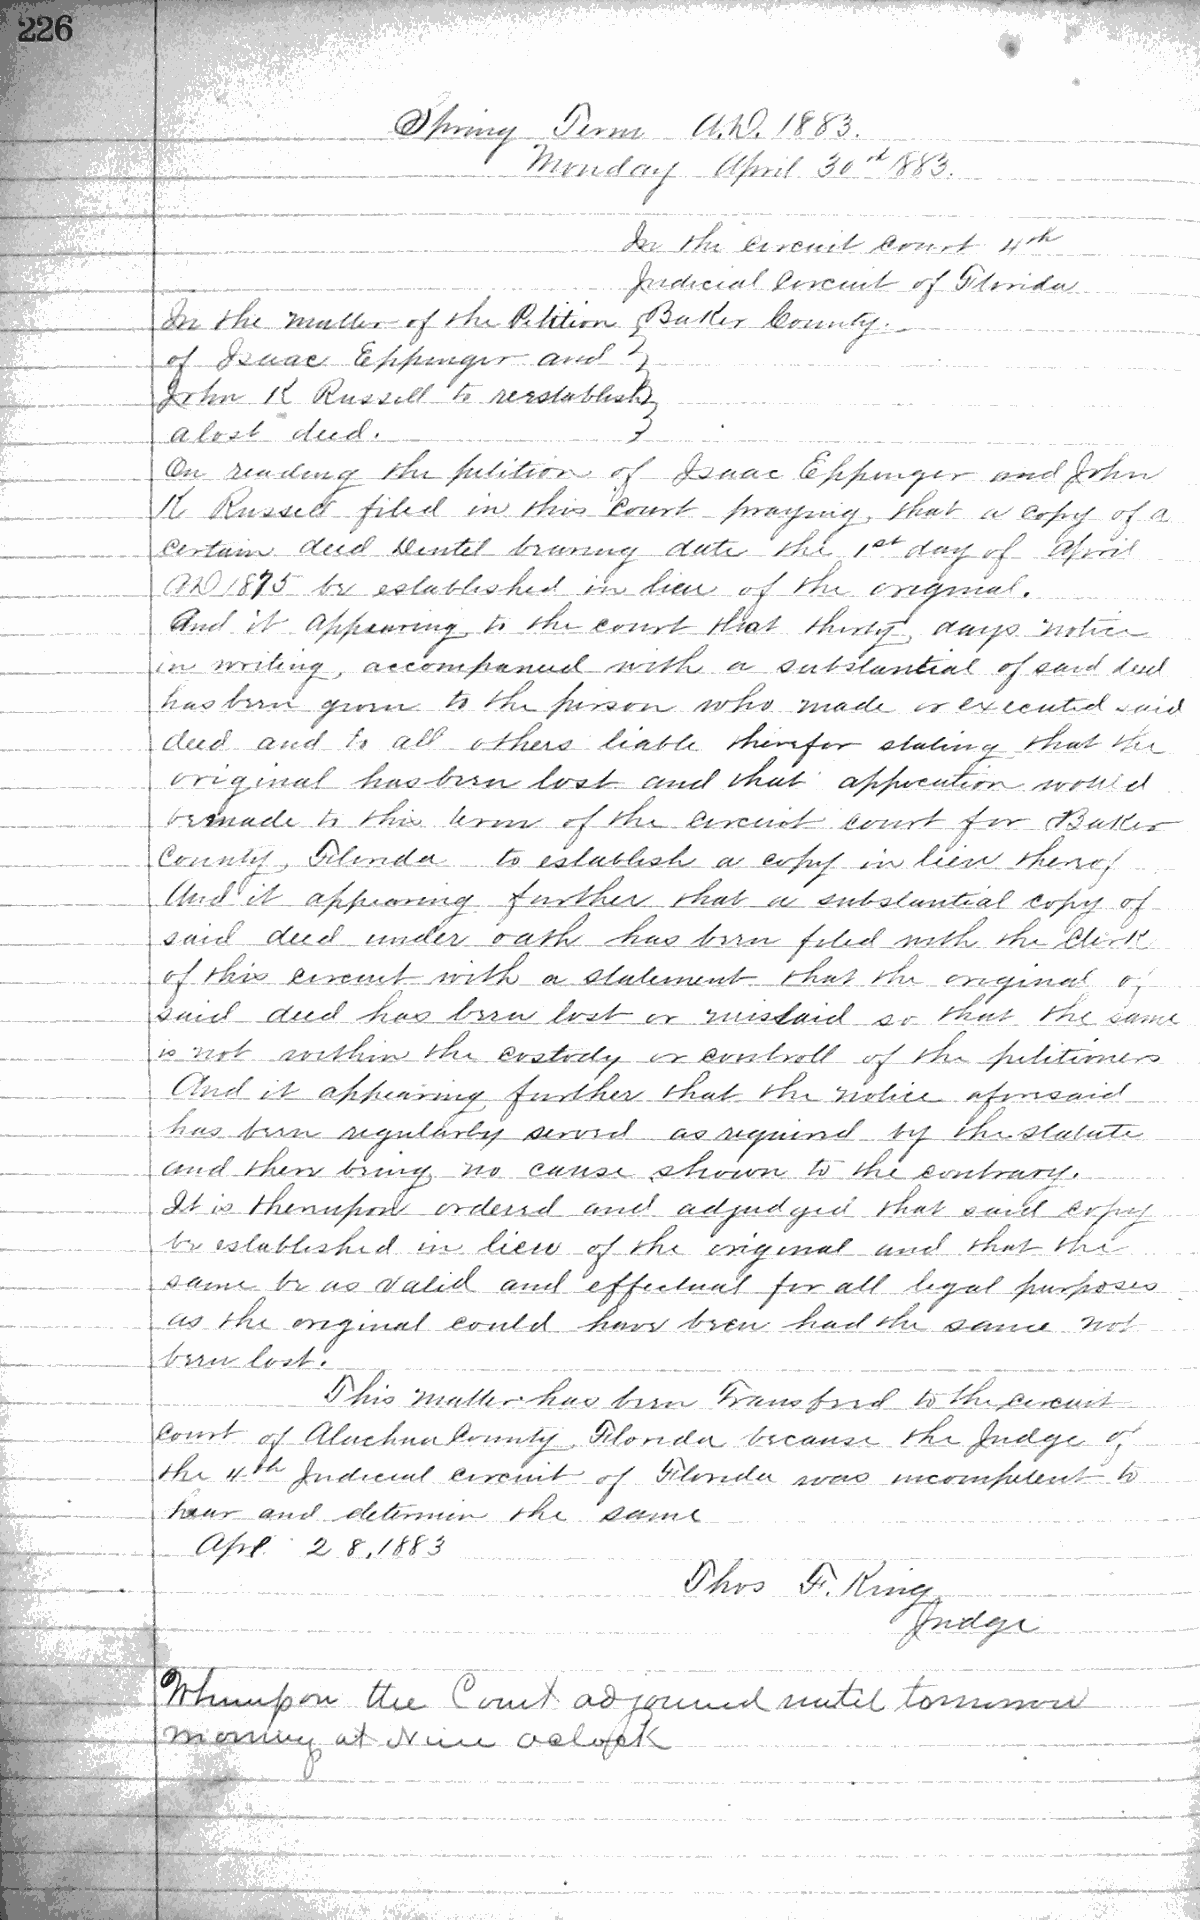 226
Spring Term A.D. 1883.
Monday April 30rd 1883.
In the circuit court 4th
Judicial Circuit of Florida
In the matter of the Petition Baker County.
of Isaac Eppinger and
John K Russell to reestablish
a lost deed.
On reading the petition of Isaac Eppinger and John
K Russell filed in this Court praying, that a copy of a
certain deed bearing date the 1st day of April
AD 1875 be established in lieu of the original.
And it appearing to the court that thirty days notice
in writing, accompanied with a substantial of said deed
has been given to the person who made or executed said
deed and to all others liable therefor stating that the
original has been lost and that appocation would
be made to this term of the circuit court for Baker
County, Florida to establish a copy in lieu thereof
And it appearing further that a substantial copy of
said deed under oath has been filed with the Clerk
of this circuit with a statement that the original of
said deed has been lost or misslaid so that the same
is not within the custody or controll of the petitioners
And it appearing further that the notice aforesaid
has been regularly served as required by the statute
and there being no cause shown to the contrary.
It is thereupon ordered and adjudged that said copy
be established in lieu of the original and that the
same be as valid and effectual for all legal purposes
as the original could have been had the same not
been lost.
This matter has been Transfered to the circuit
court of Alachua County, Florida because the Judge of
the 4th Judicial circuit of Florida was incompetent to
hear and determin the same
Apl 28, 1883
Thos F. King
Judge
Whereupon the Court adjourned until tomorrow
morning at Nine oclock